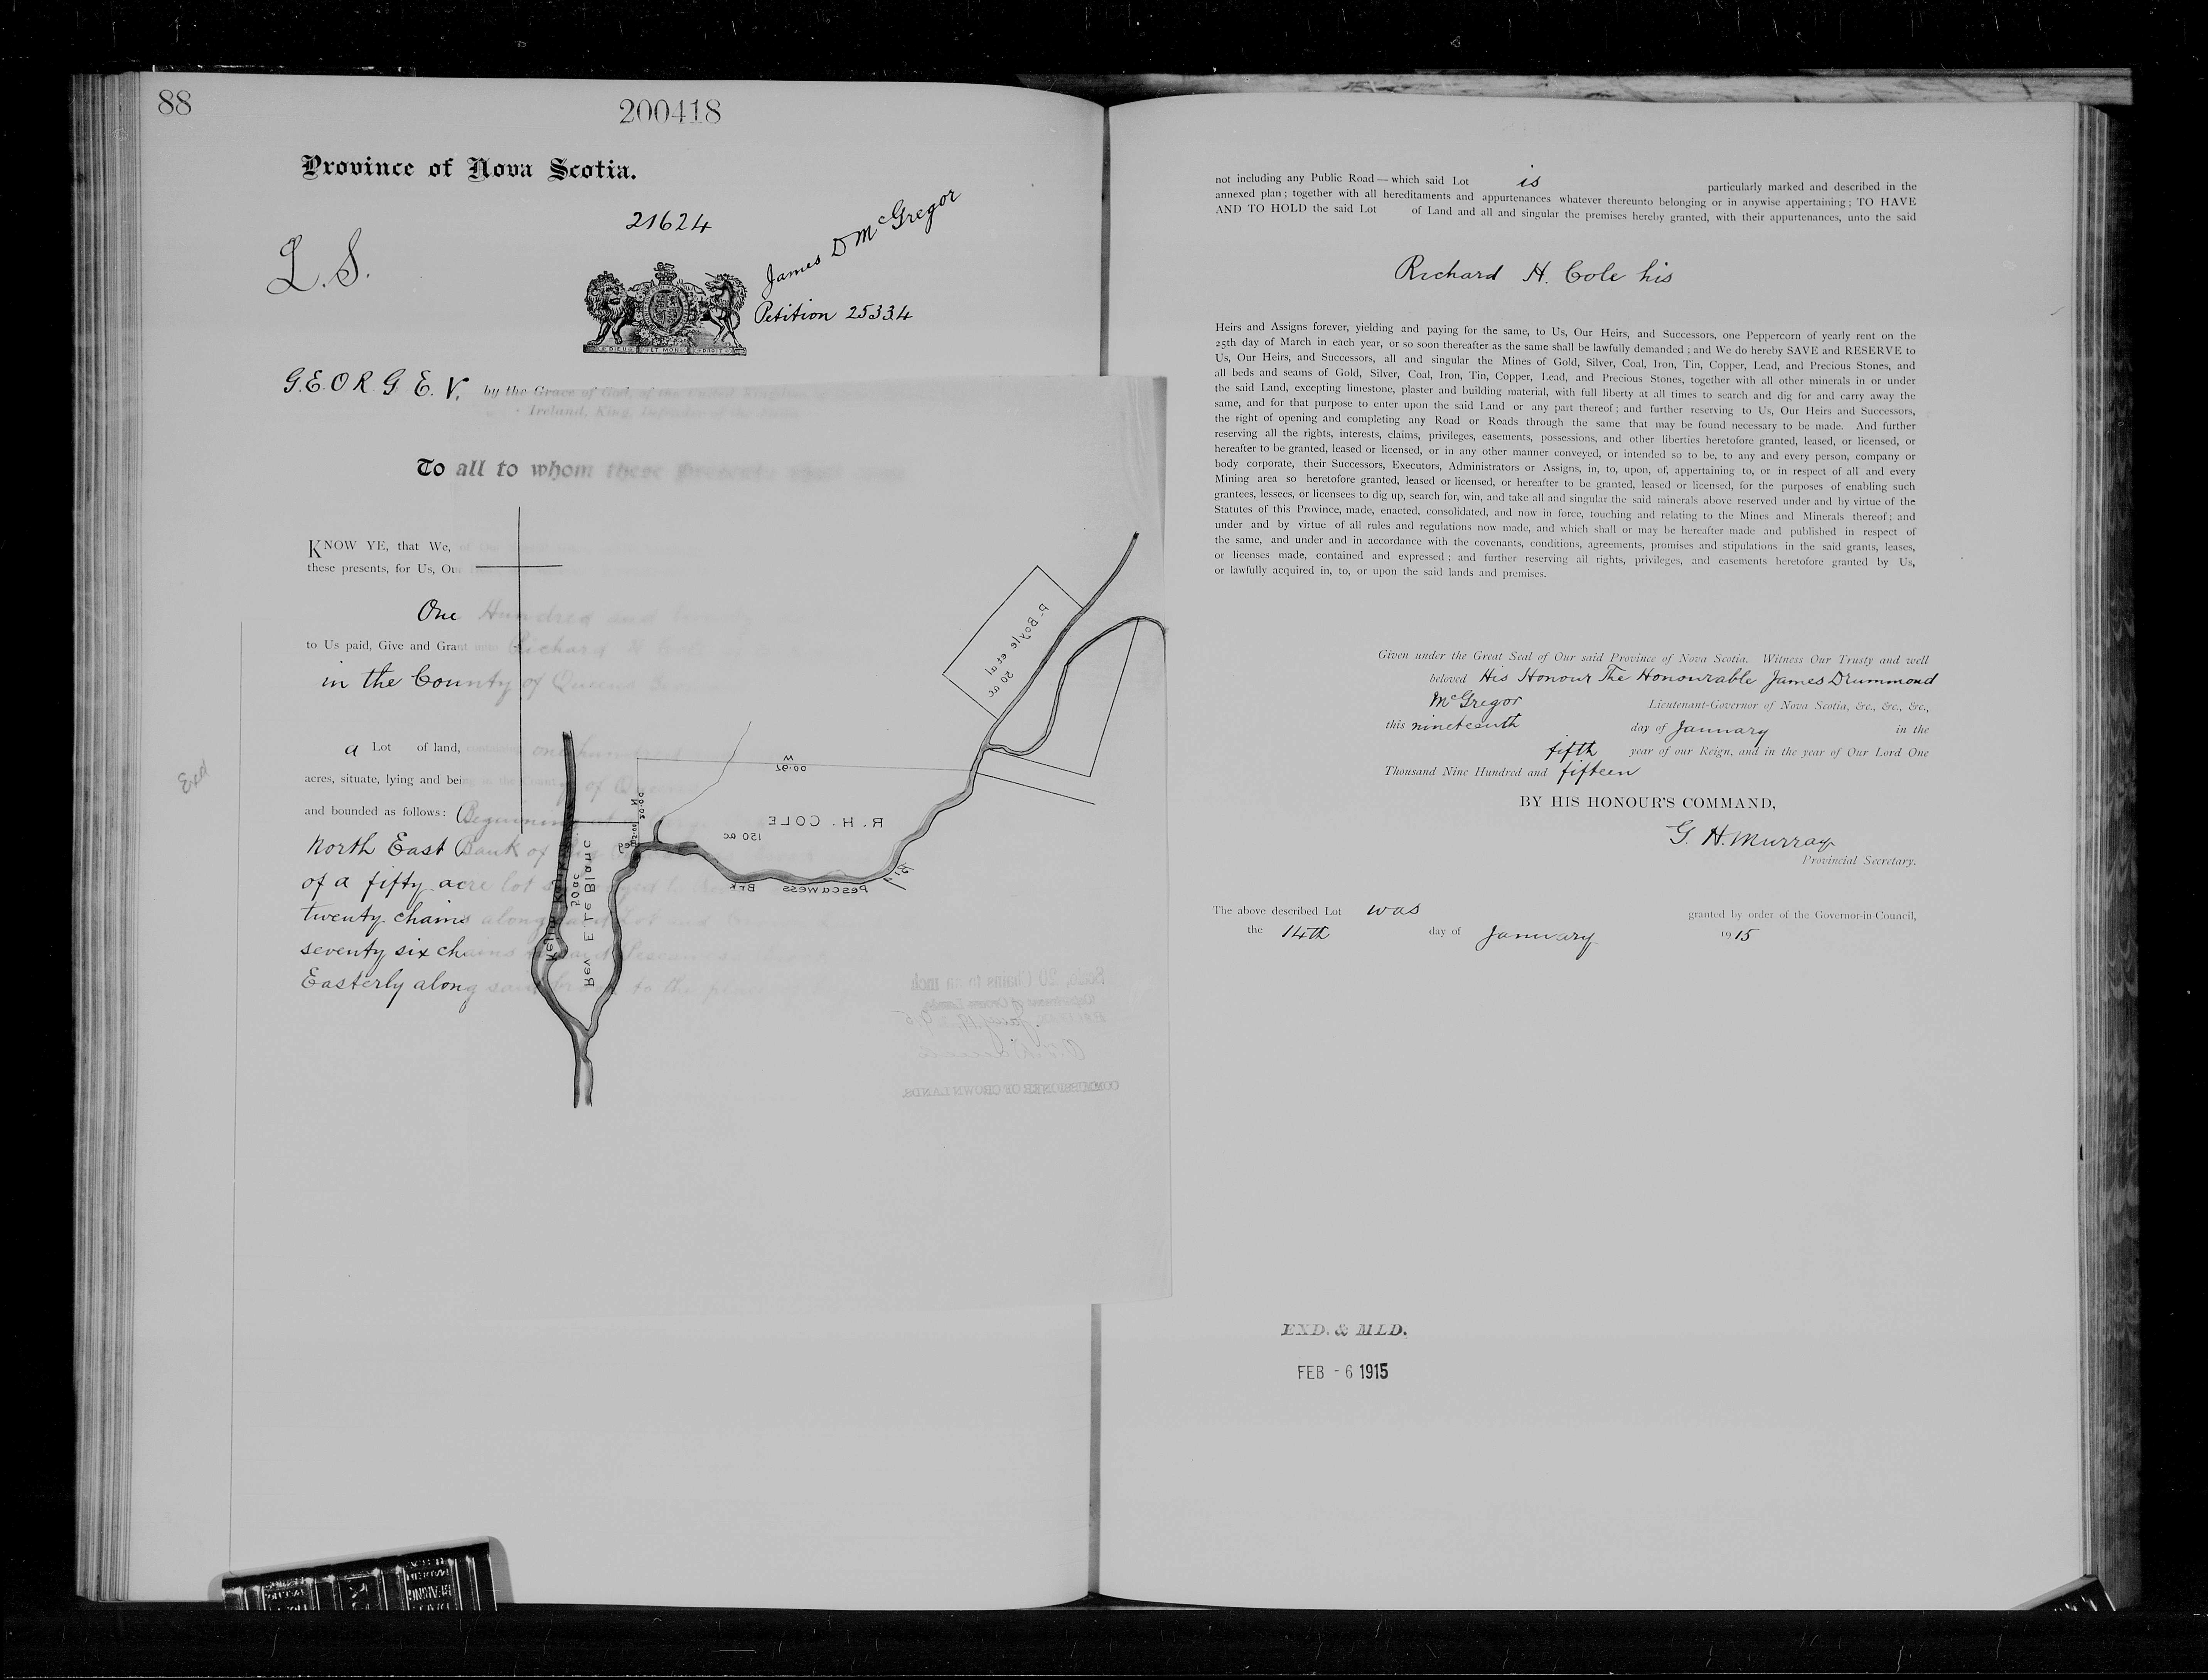 88
200418
Province of Nova Scotia.
21624
L.S.
James D McGregor
Petition 25334
DIEU ET MON DROIT
G.E.O.R.G.E. V. by the Grace of God, of the United Kingdom of
Ireland, King, Defender of the Faith
To all to whom these Presents shall come
KNOW YE, that We,
these presents, for Us, Our
One Hundred and twenty
to Us paid, Give and Grant unto Richard H Cole
in the County of Queens
a Lot of land, containing one hundred
acres, situate, lying and being in the County of Queens
and bounded as follows: Beginning at
North East Bank of
of a fifty acre lot
twenty chains along said lot and
seventy six chains Pescawess
Easterly along said brook to the place
Exd
P. Boyle et al
50 ac
W
76.00
N
20.00
R. H. COLE
150 ac
Beg
Big
Pescawess Brk
50 ac
Rev E Le Blanc
Scale, 20 Chains to an inch
Department of Crown Lands
COMMISSIONER OF CROWN LANDS.
not including any Public Road — which said Lot is particularly marked and described in the
annexed plan; together with all hereditaments and appurtenances whatever thereunto belonging or in anywise appertaining; TO HAVE
AND TO HOLD the said Lot of Land and all and singular the premises hereby granted, with their appurtenances, unto the said
Richard H. Cole his
Heirs and Assigns forever, yielding and paying for the same, to Us, Our Heirs, and Successors, one Peppercorn of yearly rent on the
25th day of March in each year, or so soon thereafter as the same shall be lawfully demanded; and We do hereby SAVE and RESERVE to
Us, Our Heirs, and Successors, all and singular the Mines of Gold, Silver, Coal, Iron, Tin, Copper, Lead, and Precious Stones, and
all beds and seams of Gold, Silver, Coal, Iron, Tin, Copper, Lead, and Precious Stones, together with all other minerals in or under
the said Land, excepting limestone, plaster and building material, with full liberty at all times to search and dig for and carry away the
same, and for that purpose to enter upon the said Land or any part thereof; and further reserving to Us, Our Heirs and Successors,
the right of opening and completing any Road or Roads through the same that may be found necessary to be made. And further
reserving all the rights, interests, claims, privileges, easements, possessions, and other liberties heretofore granted, leased, or licensed, or
hereafter to be granted, leased or licensed, or in any other manner conveyed, or intended so to be, to any and every person, company or
body corporate, their Successors, Executors, Administrators or Assigns, in, to, upon, of, appertaining to, or in respect of all and every
Mining area so heretofore granted, leased or licensed, or hereafter to be granted, leased or licensed, for the purposes of enabling such
grantees, lessees, or licensees to dig up, search for, win, and take all and singular the said minerals above reserved under and by virtue of the
Statutes of this Province, made, enacted, consolidated, and now in force, touching and relating to the Mines and Minerals thereof; and
under and by virtue of all rules and regulations now made, and which shall or may be hereafter made and published in respect of
the same, and under and in accordance with the covenants, conditions, agreements, promises and stipulations in the said grants, leases,
or licenses made, contained and expressed; and further reserving all rights, privileges, and easements heretofore granted by Us,
or lawfully acquired in, to, or upon the said lands and premises.
Given under the Great Seal of Our said Province of Nova Scotia. Witness Our Trusty and well
beloved His Honour The Honourable James Drummond
McGregor Lieutenant-Governor of Nova Scotia, &c., &c., &c.,
this nineteenth day of January in the
fifth year of our Reign, and in the year of Our Lord One
Thousand Nine Hundred and fifteen
BY HIS HONOUR'S COMMAND,
G. H. Murray
Provincial Secretary.
The above described Lot was granted by order of the Governor-in-Council,
the 14th day of January 1915
EXD. & MLD.
FEB - 6 1915